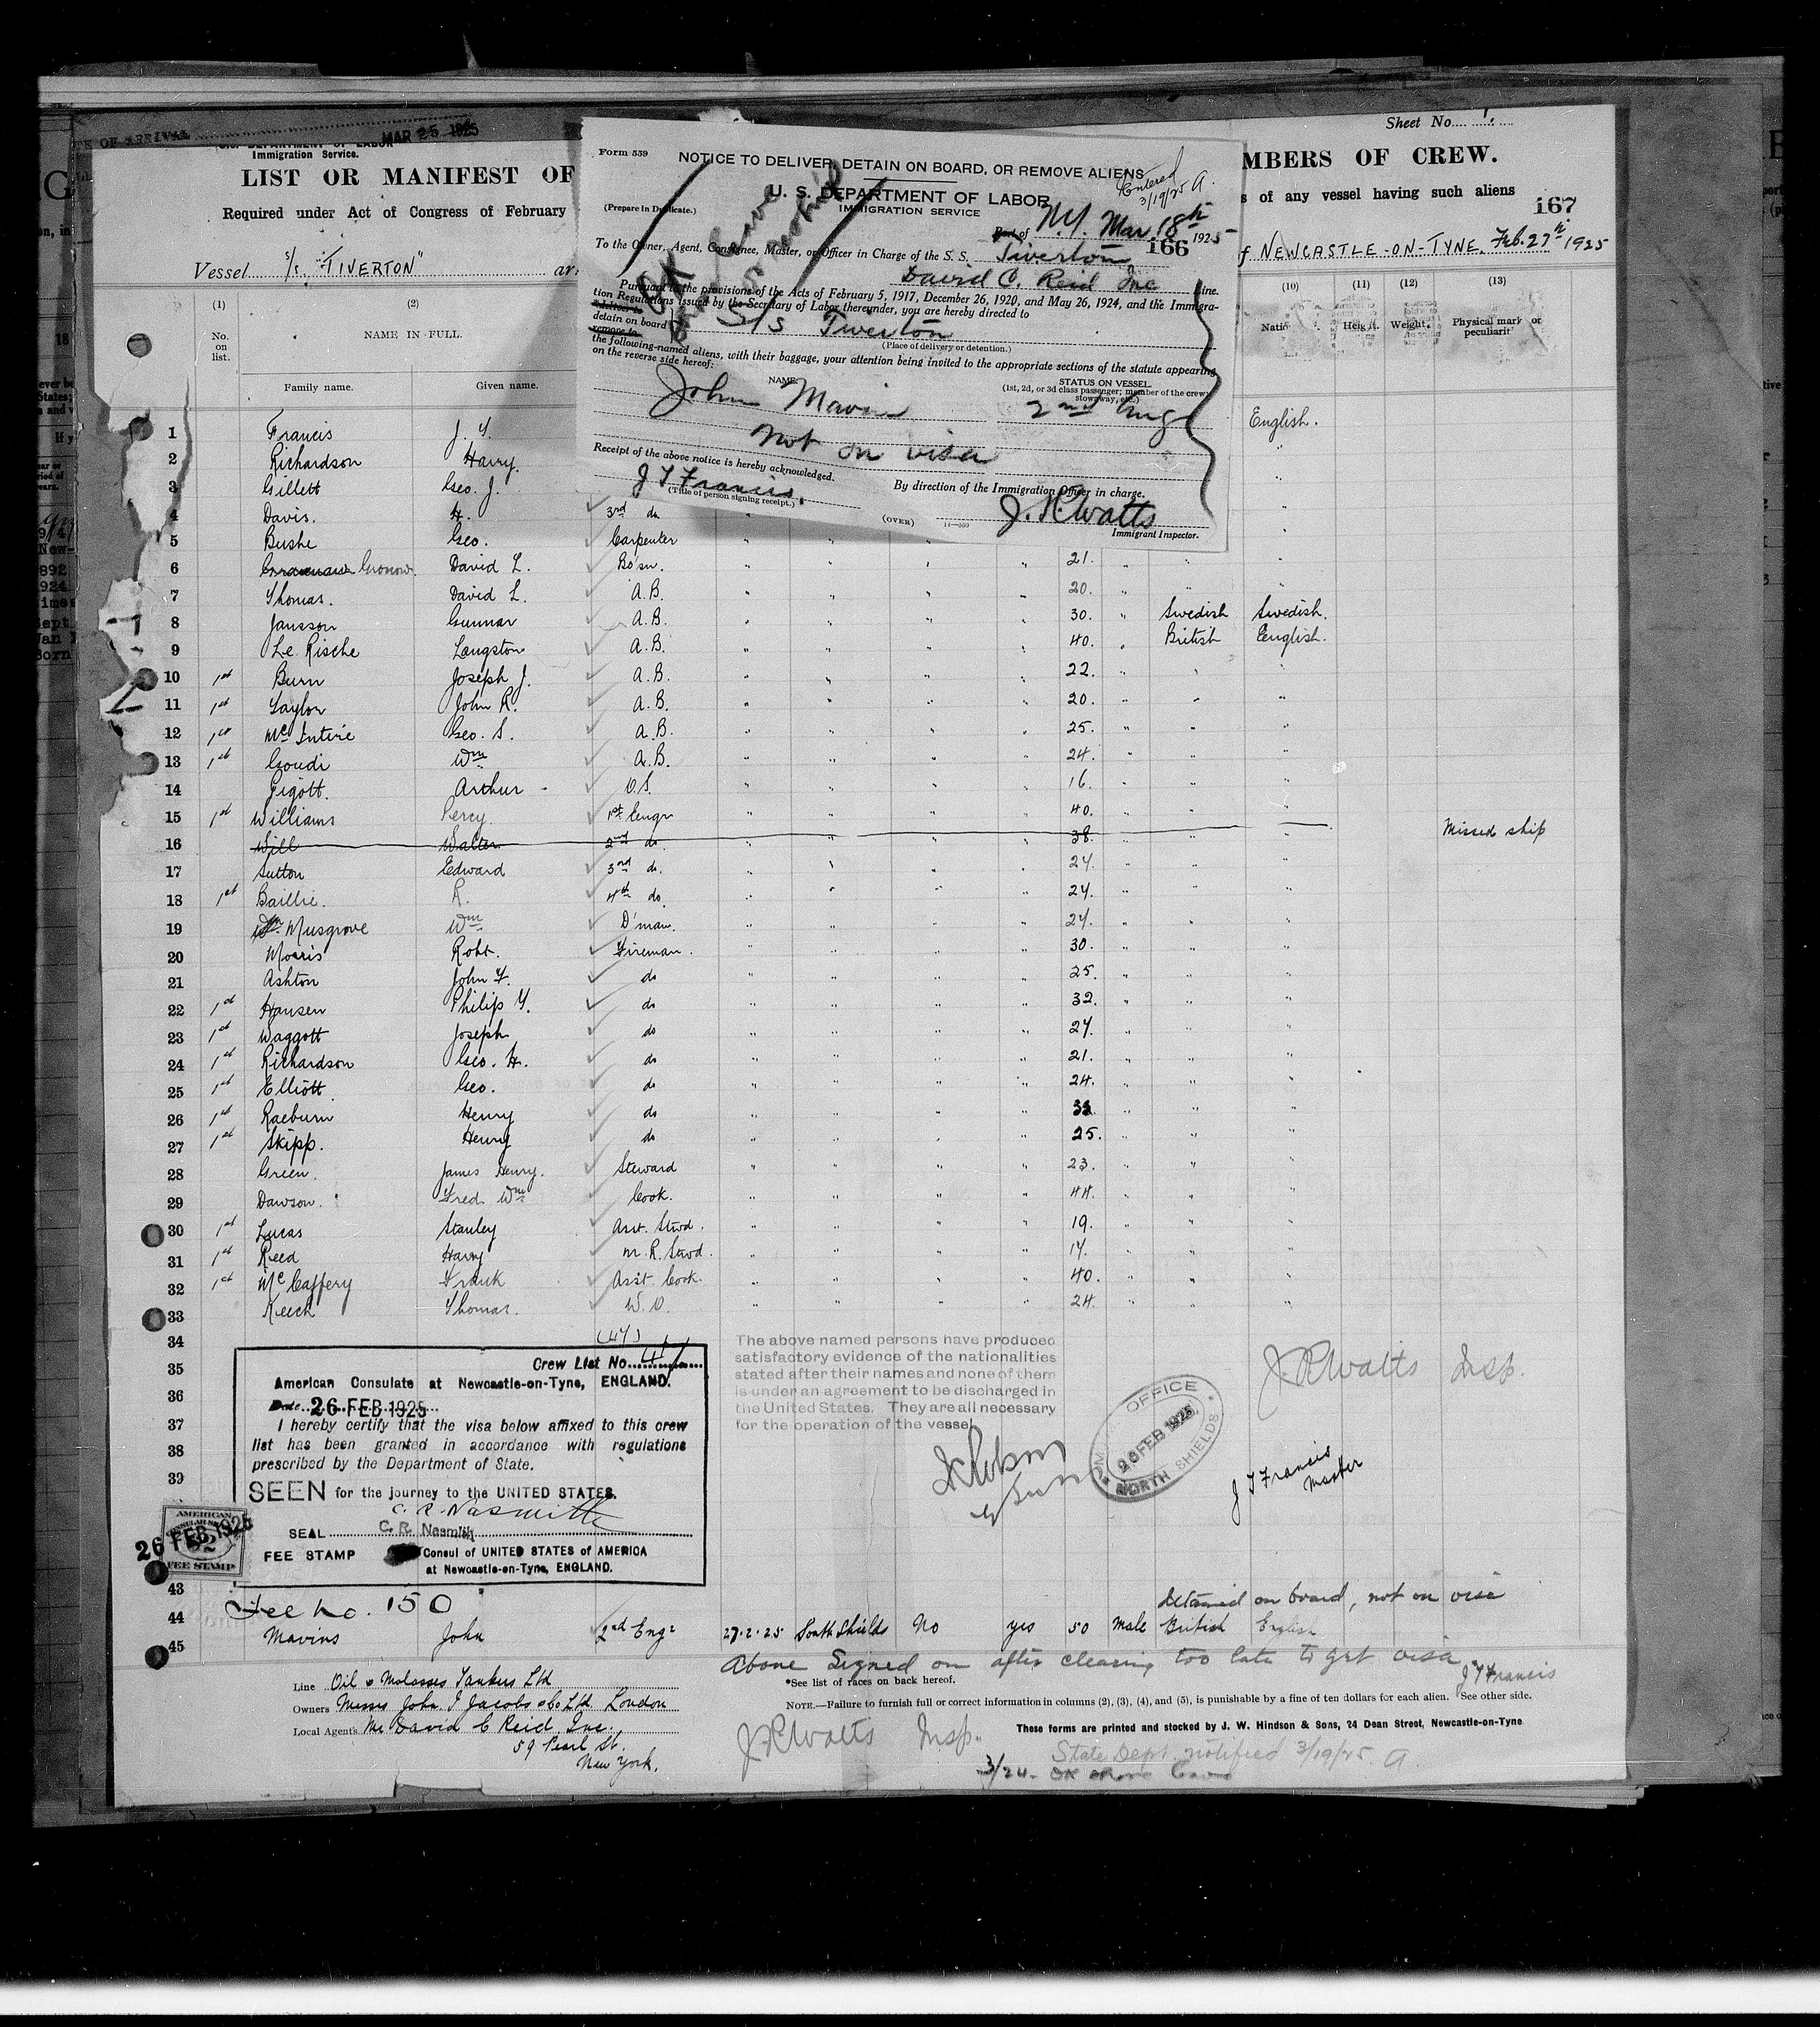 Sheet No. 1.
MAR 25 1925
Immigration Service.
LIST OR MANIFEST OF
MBERS OF CREW.
Required under Act of Congress of February
s of any vessel having such aliens
167
Vessel S/S "TIVERTON"
of NEWCASTLE-ON-TYNE. Feb. 27th 1925
Form 559
NOTICE TO DELIVER, DETAIN ON BOARD, OR REMOVE ALIENS
Entered 3/19/25 A.
U. S. DEPARTMENT OF LABOR
IMMIGRATION SERVICE
(Prepare in Duplicate.)
Port of N.Y. Mar 18th 1925
166
To the Owner, Agent, Consignee, Master, or Officer in Charge of the S. S. Tiverton
David C. Reid Inc Line.
Pursuant to the provisions of the Acts of February 5, 1917, December 26, 1920, and May 26, 1924, and the Immigra-
tion Regulations issued by the Secretary of Labor thereunder, you are hereby directed to
deliver to
detain on board S/S Tiverton
remove to
(Place of delivery or detention.)
the following-named aliens, with their baggage, your attention being invited to the appropriate sections of the statute appearing
on the reverse side hereof:
NAME
STATUS ON VESSEL
(1st, 2d, or 3d class passenger; member of the crew; stowaway, etc.)
John Mavin 2nd Eng
Not on visa
Receipt of the above notice is hereby acknowledged.
J T Francis.
(Title of person signing receipt.)
By direction of the Immigration Officer in charge.
(OVER)
J. R. Watts
Immigrant Inspector.
(1) (2) (10) (11) (12) (13)
No. on list. NAME IN FULL. Height. Weight. Physical mark or
Family name. Given name.
1 Francis J. T. English.
2 Richardson Harry. "
3 Gillett Geo. J. "
4 Davis. H. 3rd do "
5 Bushe Geo. Carpenter "
6 Gronow. David L. Bo'sn. " " " " 21. " " "
7 Thomas. David L. A.B. " " " " 20. " " "
8 Jansson Gunnar A.B. " " " " 30. " Swedish Swedish.
9 Le Rische Langston A.B. " " " " 40. " British English.
10 1st Burn Joseph J. A.B. " " " " 22. " " "
11 1st Taylor John R. A.B. " " " " 20. " " "
12 1st McIntire Geo. S. A.B. " " " " 25. " " "
13 1st Goudi Wm A.B. " " " " 24. " " "
14 Pigott. Arthur O.S. " " " " 16. " " "
15 1st Williams Percy. 1st Engr " " " " 40. " " "
16 Will Walter 2nd do. " " " " 38. " " " Missed ship
17 Sutton Edward 3rd do. " " " " 24. " " "
18 1st Baillie. R. 4th do. " " " " 24. " " "
19 Musgrove Wm D'man. " " " " 24. " " "
20 Morris Robt. Fireman. " " " " 30. " " "
21 Ashton John F. do " " " " 25. " " "
22 1st Hansen Philip Y. do " " " " 32. " " "
23 1st Waggott Joseph do " " " " 24. " " "
24 1st Richardson Geo. H. do " " " " 21. " " "
25 1st Elliott. Geo. do " " " " 24. " " "
26 1st Raeburn Henry do " " " " " " "
27 1st Skipp. Henry do " " " " 25. " " "
28 Green. James Henry. Steward " " " " 23. " " "
29 Dawson. Fred. Wm Cook. " " " " 44. " " "
30 1st Lucas Stanley Asst. Stwd. " " " " 19. " " "
31 1st Reed Harry M. R. Stwd. " " " " 17. " " "
32 1st McCaffery Frank Asst Cook. " " " " 40. " " "
33 Keech Thomas. W. O. " " " " 24. " " "
34
35
36
37
38
39
43
44
45
Crew List No.
American Consulate at Newcastle-on-Tyne, ENGLAND.
Date 26 FEB 1925
I hereby certify that the visa below affixed to this crew
list has been granted in accordance with regulations
prescribed by the Department of State.
SEEN for the journey to the UNITED STATES.
C. R. Nasmith
SEAL C. R. Nasmith
FEE STAMP Consul of UNITED STATES of AMERICA
at Newcastle-on-Tyne, ENGLAND.
AMERICAN
FEE STAMP
26 FEB 1925
Fee No. 150
The above named persons have produced
satisfactory evidence of the nationalities
stated after their names and none of them
is under an agreement to be discharged in
the United States. They are all necessary
for the operation of the vessel
OFFICE
26 FEB 1925
NORTH SHIELDS
J. R. Watts Insp.
J T Francis
Master
detained on board, not on visa
Mavins John 2nd Engr 27.2.25 South Shields No yes 50 Male British English
Above signed on after clearing too late to get visa
J T Francis
Line Oil & Molasses Tankers Ltd
Owners Messrs John. I Jacobs & Co Ltd. London
Local Agents Mr David C Reid Inc.,
59 Pearl St.
New York.
*See list of races on back hereof.
NOTE.—Failure to furnish full or correct information in columns (2), (3), (4), and (5), is punishable by a fine of ten dollars for each alien. See other side.
These forms are printed and stocked by J. W. Hindson & Sons, 24 Dean Street, Newcastle-on-Tyne
J. R. Watts Insp.
State Dept. notified 3/19/25. A
3/24- OK